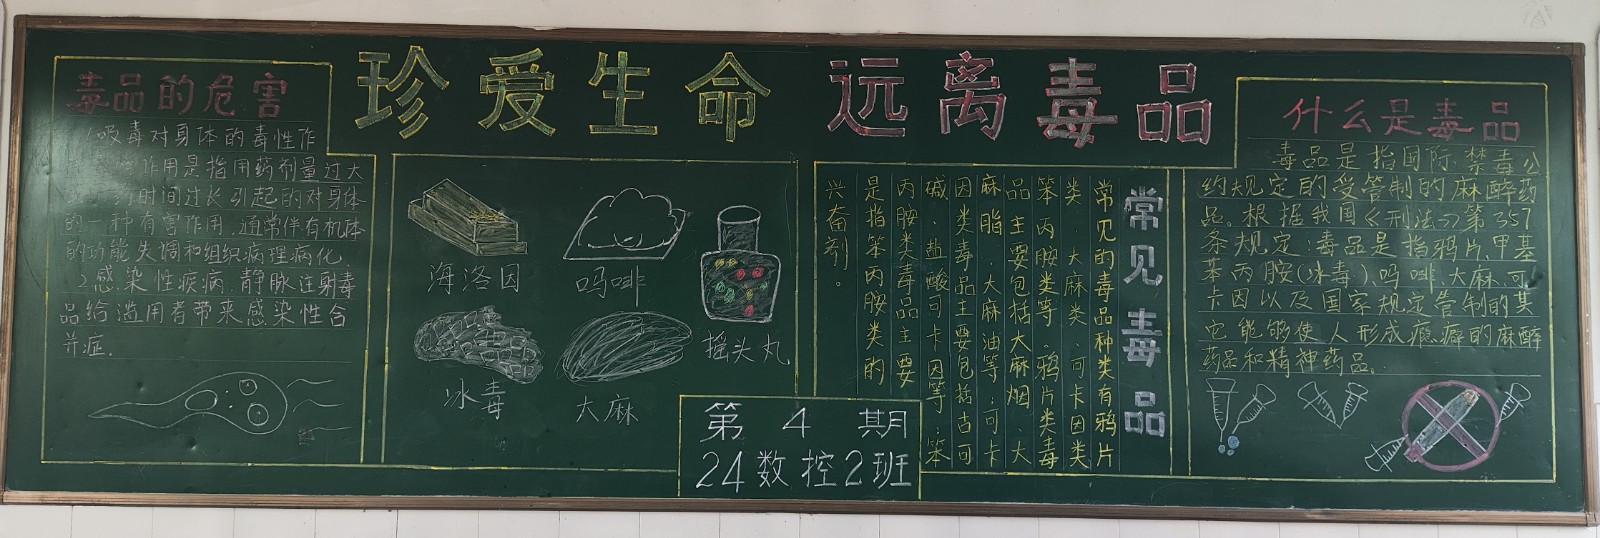 珍爱生命 远离毒品
毒品的危害
1.吸毒对身体的毒性作
作用是指用药剂量过大
时间过长引起的对身体
的一种有害作用,通常伴有机体
的功能失调和组织病理病化.
2.感染性疾病,静脉注射毒
品给滥用者带来感染性合
并症.
海洛因
吗啡
摇头丸
冰毒
大麻
第4期
24数控2班
常见毒品
常见的毒品种类有鸦片
类、大麻类、可卡因类
笨丙胺类等。鸦片类毒
品主要包括大麻烟、大
麻脂、大麻油等;可卡
因类毒品主要包括古可
碱、盐酸可卡因等;笨
丙胺类毒品主要
是指笨丙胺类的
兴奋剂。
什么是毒品
毒品是指国际禁毒公
约规定的受管制的麻醉药
品。根据我国《刑法》第357
条规定:毒品是指鸦片、甲基
苯丙胺(冰毒)、吗啡、大麻、可
卡因以及国家规定管制的其
它能够使人形成瘾癖的麻醉
药品和精神药品。